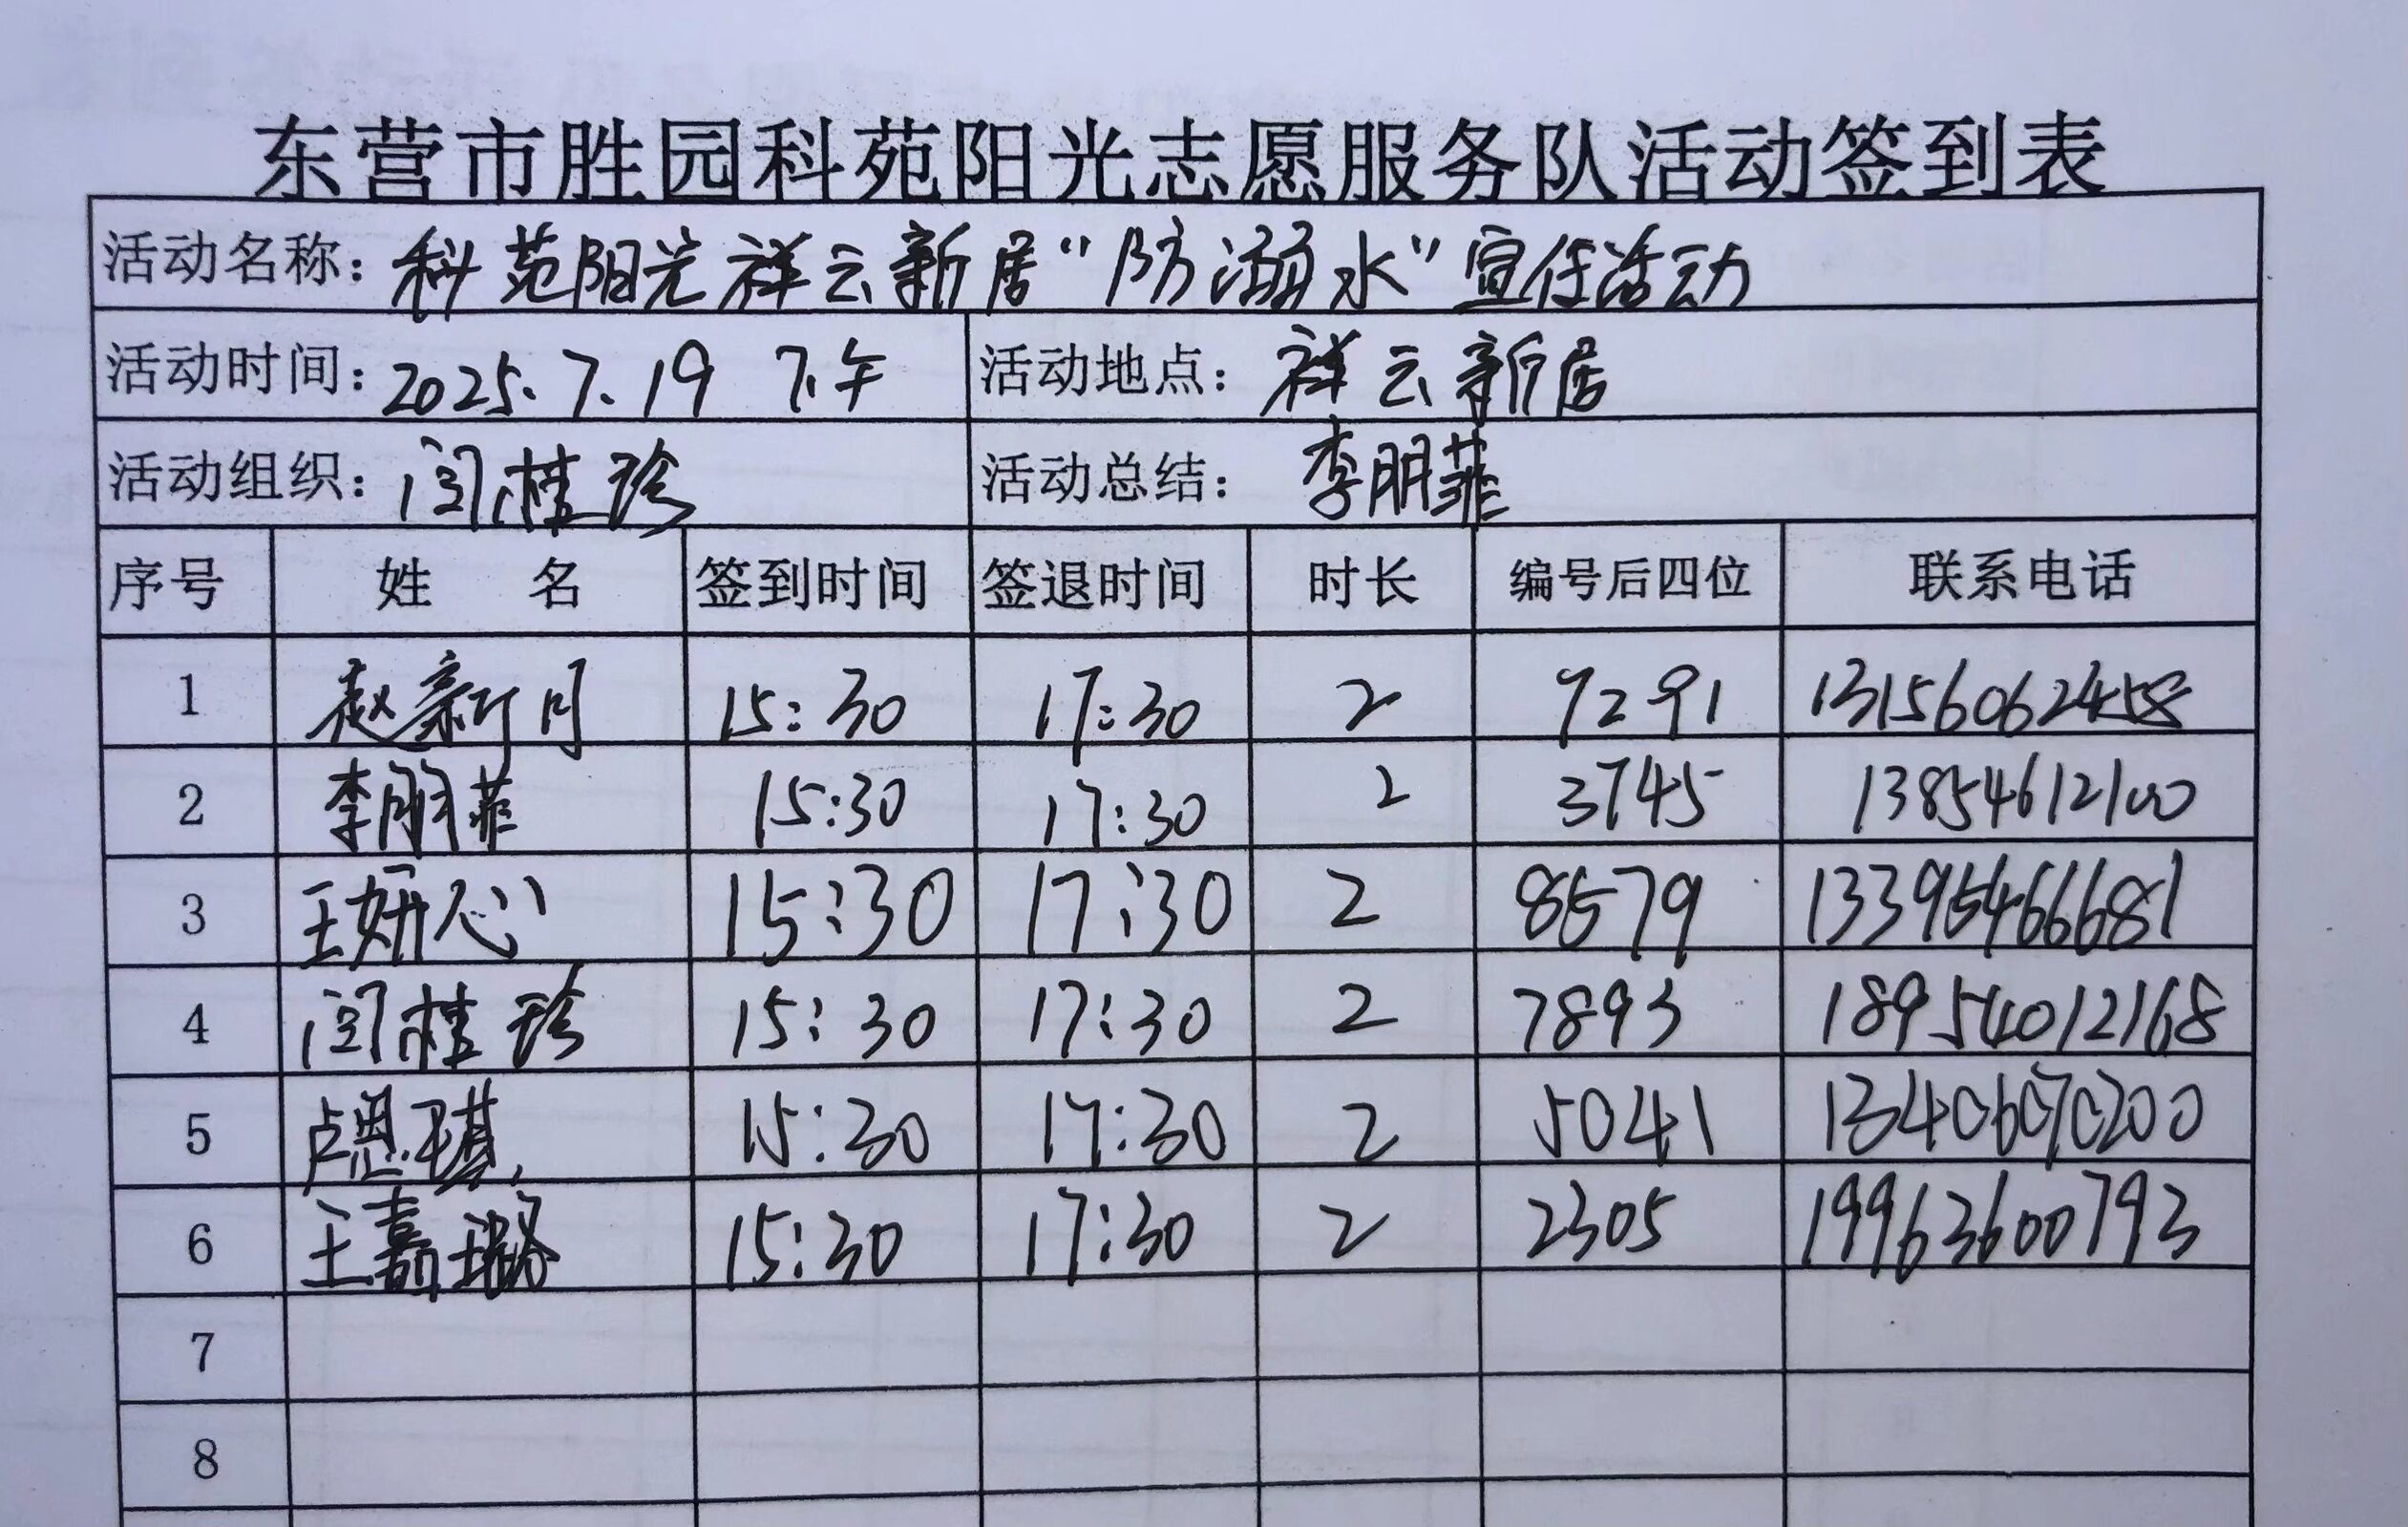 东营市胜园科苑阳光志愿服务队活动签到表
活动名称：科苑阳光祥云新居“防溺水”宣传活动
活动时间：2025.7.19 下午 活动地点：祥云新居
活动组织：闫桂珍 活动总结：李朋菲
序号 姓 名 签到时间 签退时间 时长 编号后四位 联系电话
1 赵新月 15:30 17:30 2 9291 13156062458
2 李朋菲 15:30 17:30 2 3745 13854612100
3 王妍心 15:30 17:30 2 8579 13395466681
4 闫桂珍 15:30 17:30 2 7893 18954012168
5 卢恩琪 15:30 17:30 2 5041 13406070200
6 王嘉璐 15:30 17:30 2 2305 19963600793
7
8